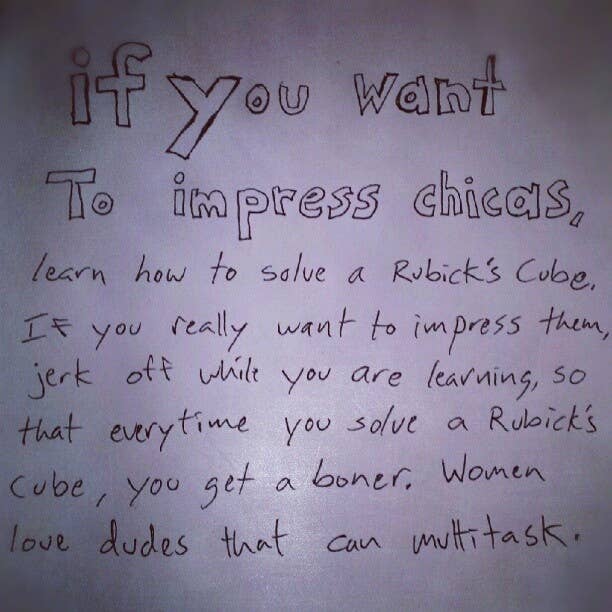 if you want
To impress chicas,
learn how to solve a Rubick's Cube.
If you really want to impress them,
jerk off while you are learning, so
that everytime you solve a Rubick's
Cube, you get a boner. Women
love dudes that can multitask.